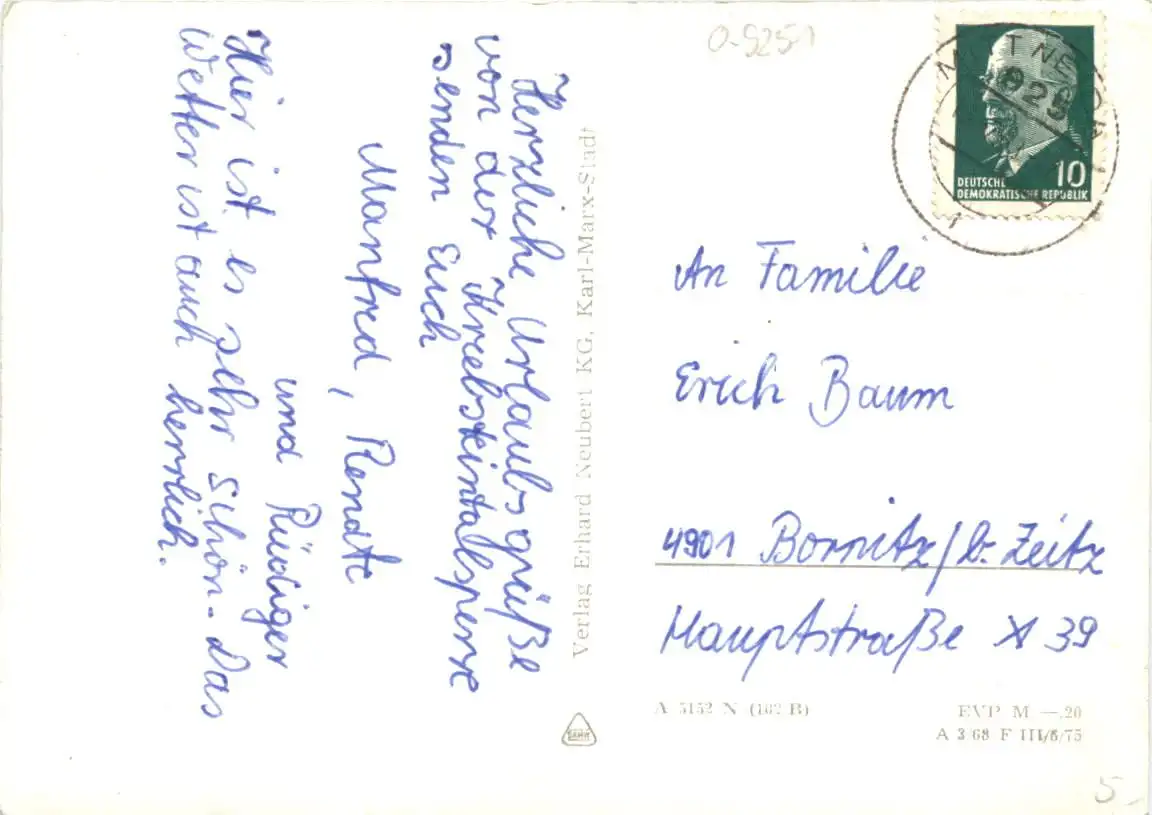 Herzliche Urlaubsgrüße
von der Kriebsteintalsperre
senden Euch
Manfred, Renate
und Rüdiger
Hier ist es sehr schön. Das
Wetter ist auch herrlich.
Verlag Erhard Neubert KG, Karl-Marx-Stadt
O-9251
10
DEUTSCHE
DEMOKRATISCHE REPUBLIK
An Familie
Erich Baum
4901 Bornitz/b. Zeitz
Hauptstraße 39
A 5152 N (162 B)
EVP M —.20
A 3/68 F III/6/75
5